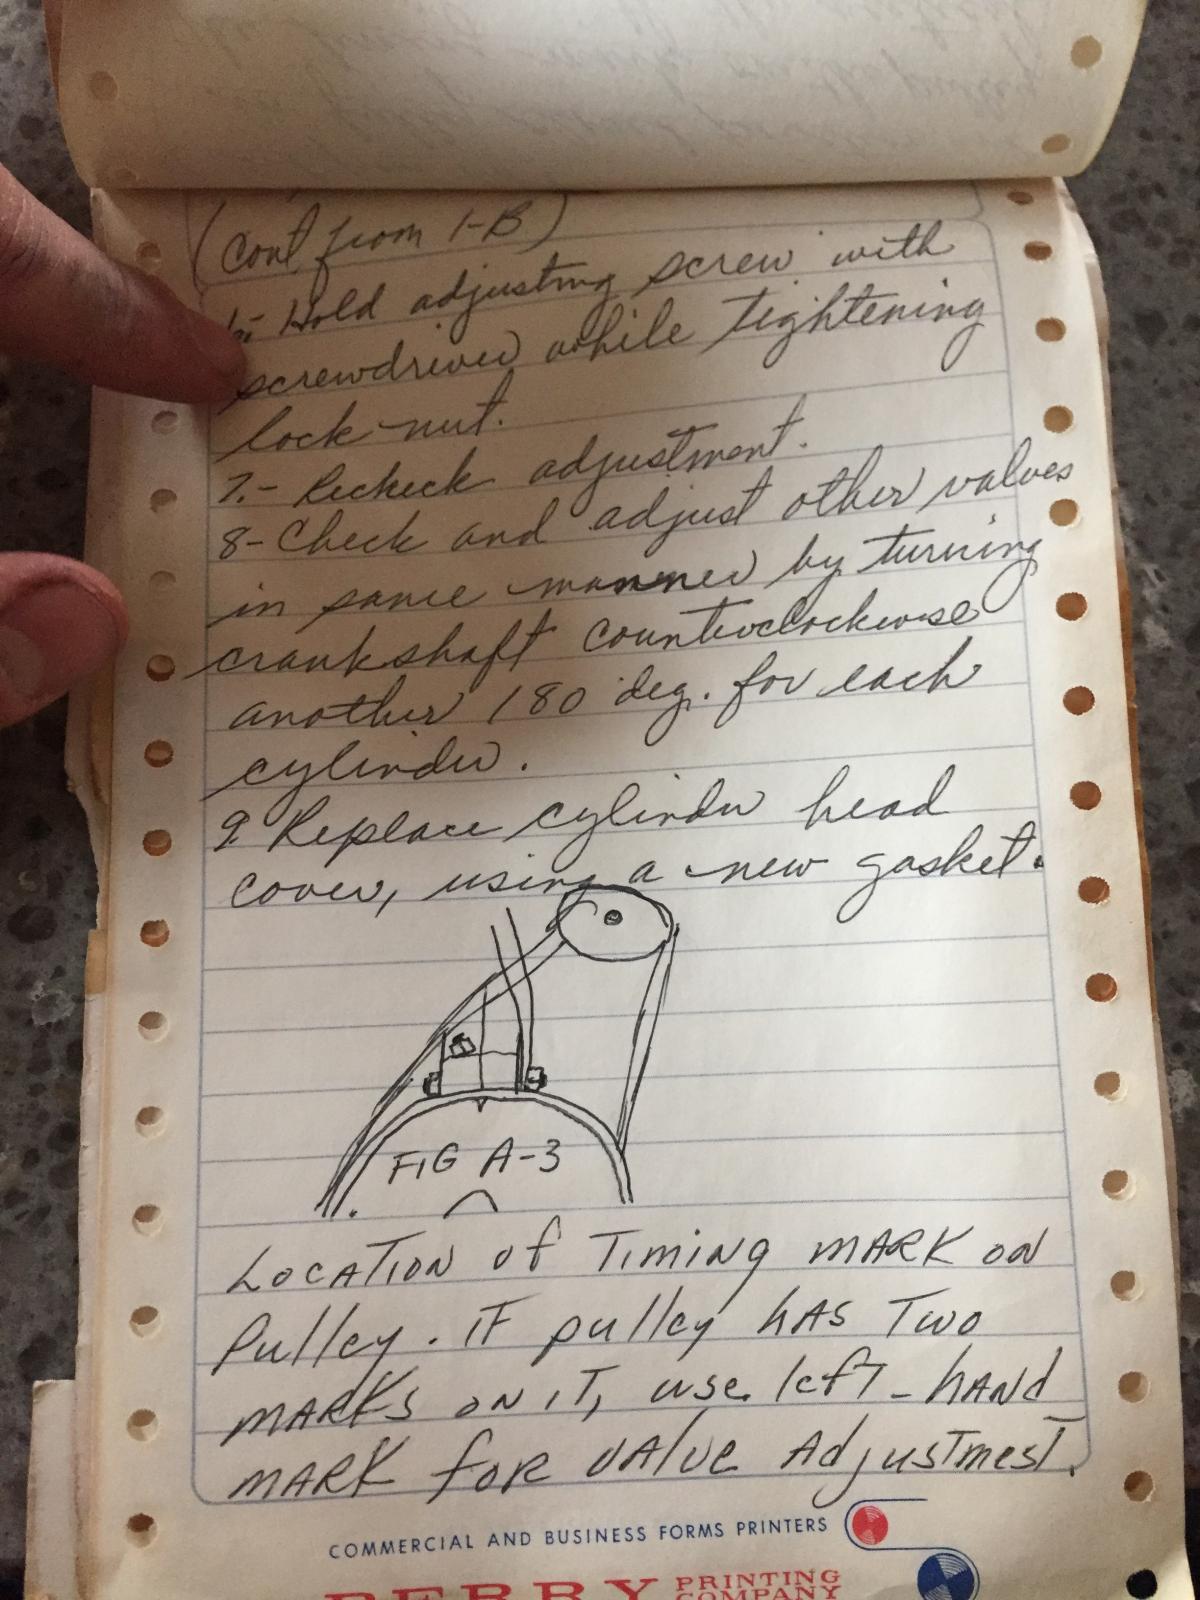 (Cont from 1-B)
6- Hold adjusting screw with
screwdriver while tightening
lock-nut.
7.- Recheck adjustment.
8- Check and adjust other valves
in same manner by turning
crankshaft counterclockwise
another 180 deg. for each
cylinder.
9. Replace cylinder head
cover, using a new gasket.
FIG A-3
LOCATION of Timing MARK ON
Pulley. IF pulley HAS Two
MARKS ON IT, use left-HAND
MARK FOR VAlVE AdjusTmesT.
COMMERCIAL AND BUSINESS FORMS PRINTERS
BERRY PRINTING
COMPANY